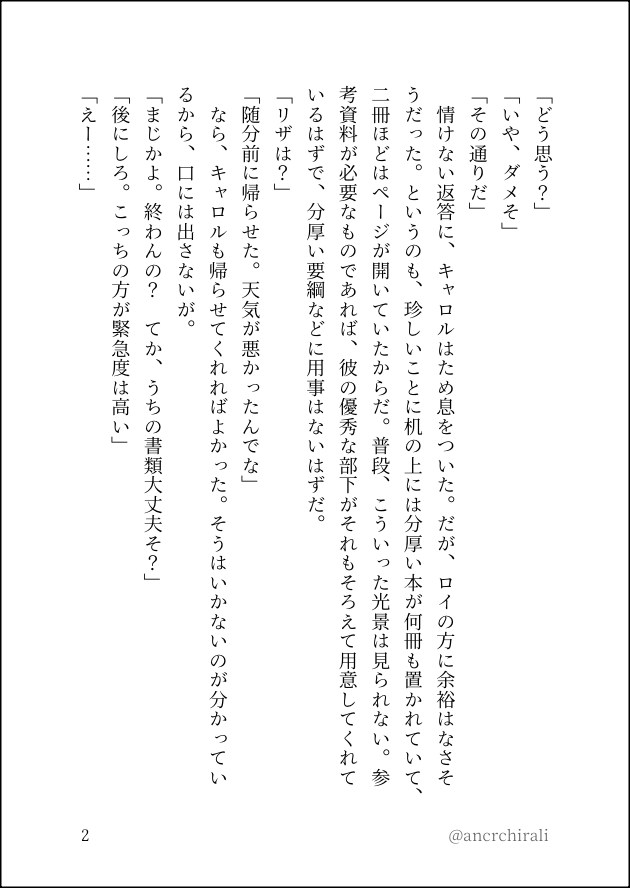 「どう思う？」
「いや、ダメそ」
「その通りだ」
　情けない返答に、キャロルはため息をついた。だが、ロイの方に余裕はなさそ
うだった。というのも、珍しいことに机の上には分厚い本が何冊も置かれていて、
二冊ほどはページが開いていたからだ。普段、こういった光景は見られない。参
考資料が必要なものであれば、彼の優秀な部下がそれもそろえて用意してくれて
いるはずで、分厚い要綱などに用事はないはずだ。
「リザは？」
「随分前に帰らせた。天気が悪かったんでな」
　なら、キャロルも帰らせてくれればよかった。そうはいかないのが分かってい
るから、口には出さないが。
「まじかよ。終わんの？　てか、うちの書類大丈夫そ？」
「後にしろ。こっちの方が緊急度は高い」
「えー……」
2
@ancrchirali